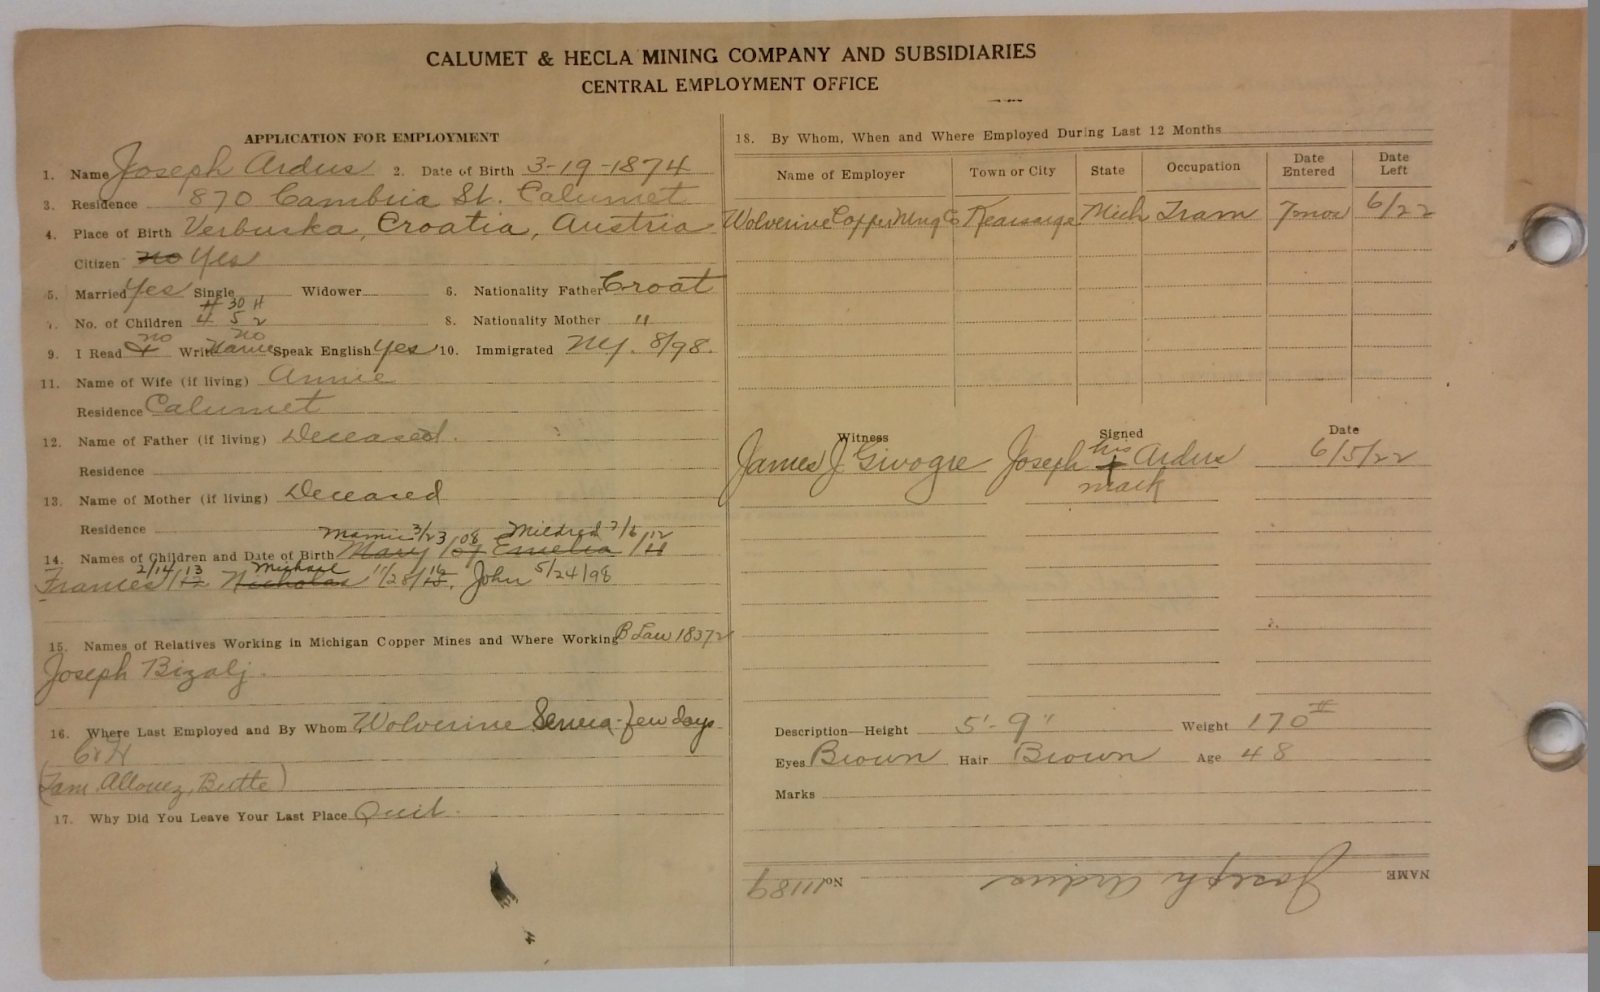 CALUMET & HECLA MINING COMPANY AND SUBSIDIARIES
CENTRAL EMPLOYMENT OFFICE
APPLICATION FOR EMPLOYMENT
1. Name Joseph Ardus 2. Date of Birth 3-19-1874
3. Residence 870 Cambria St. Calumet
4. Place of Birth Verbuska, Croatia, Austria
Citizen no Yes
5. Married Yes Single Widower 6. Nationality Father Croat
H 30 H
7. No. of Children 4 5 2 8. Nationality Mother "
no no
9. I Read Write Speak English Yes 10. Immigrated NY. 8/98.
11. Name of Wife (if living) Annie
Residence Calumet
12. Name of Father (if living) Deceased.
Residence
13. Name of Mother (if living) Deceased
Residence
Mamie 3/23 08 Mildred 7/6 12
14. Names of Children and Date of Birth Mary /07 Emelia /11
2/14 13 Michael 16
Frances /12 Nicholas 11/28/15. John 5/24/98
15. Names of Relatives Working in Michigan Copper Mines and Where Working B Law 18372
Joseph Bizalj.
16. Where Last Employed and By Whom Wolverine Seneca-few days
C&H
(Tam. Allouez, Butte)
17. Why Did You Leave Your Last Place Quit.
18. By Whom, When and Where Employed During Last 12 Months
Name of Employer Town or City State Occupation Date Entered Date Left
Wolverine Copper Mng Co Kearsarge Mich Tram 7 mos 6/22
Witness Signed Date
James J. Givogre Joseph his + mark Ardus 6/5/22
Description—Height 5'-9" Weight 170#
Eyes Brown Hair Brown Age 48
Marks
NAME Joseph Ardus No. 11189